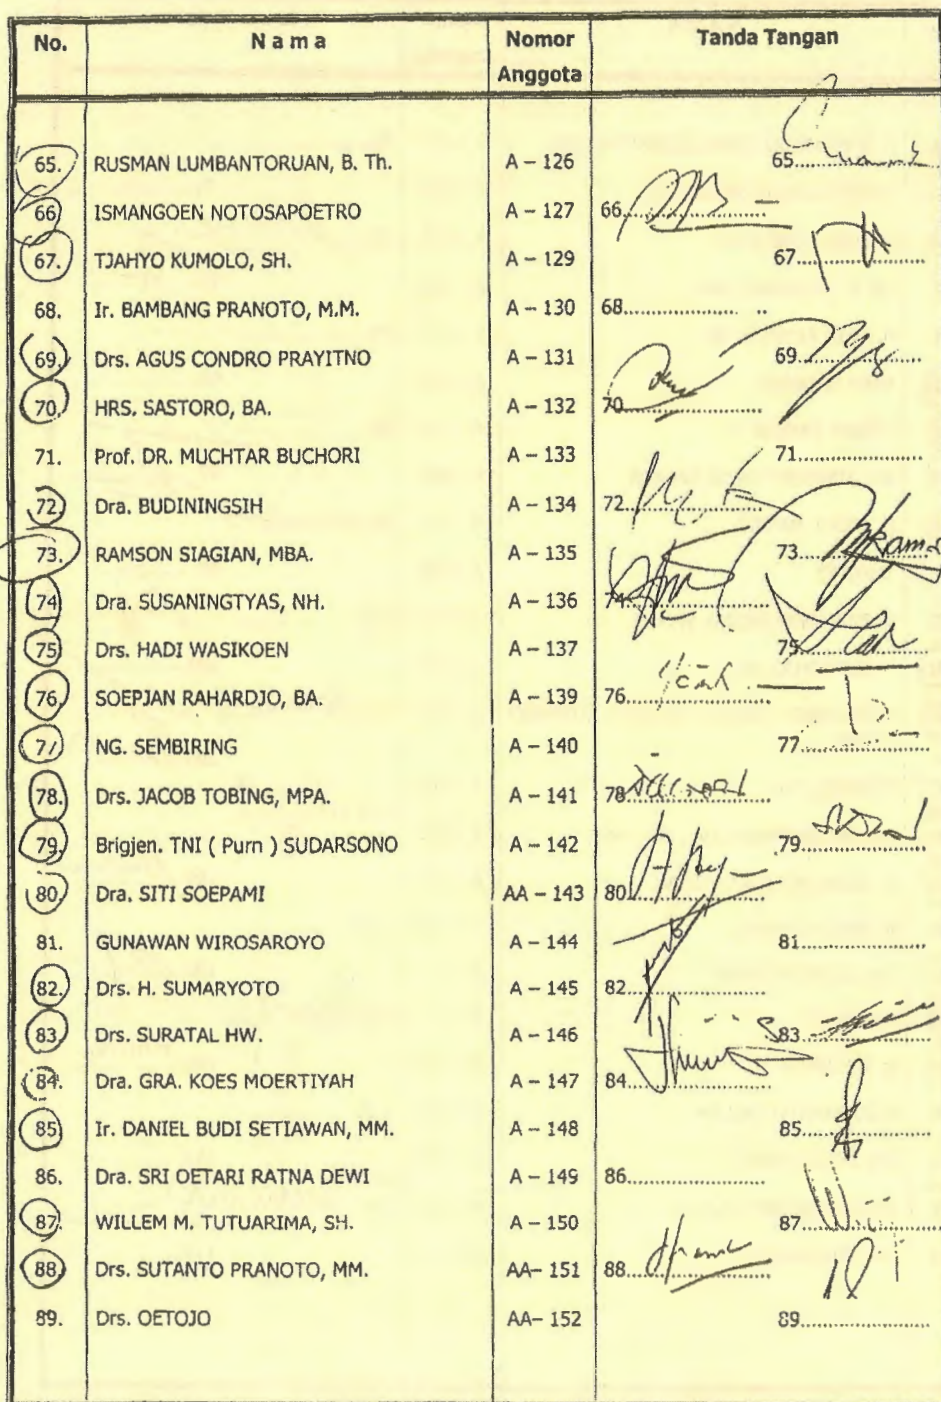 No. N a m a Nomor Anggota Tanda Tangan
65. RUSMAN LUMBANTORUAN, B. Th. A – 126 65
66 ISMANGOEN NOTOSAPOETRO A – 127 66
67. TJAHYO KUMOLO, SH. A – 129 67
68. Ir. BAMBANG PRANOTO, M.M. A – 130 68
69. Drs. AGUS CONDRO PRAYITNO A – 131 69
70. HRS. SASTORO, BA. A – 132 70
71. Prof. DR. MUCHTAR BUCHORI A – 133 71
72. Dra. BUDININGSIH A – 134 72
73. RAMSON SIAGIAN, MBA. A – 135 73
74 Dra. SUSANINGTYAS, NH. A – 136 74
75 Drs. HADI WASIKOEN A – 137 75
76. SOEPJAN RAHARDJO, BA. A – 139 76
77 NG. SEMBIRING A – 140 77
78. Drs. JACOB TOBING, MPA. A – 141 78
79. Brigjen. TNI ( Purn ) SUDARSONO A – 142 79
80. Dra. SITI SOEPAMI AA – 143 80
81. GUNAWAN WIROSAROYO A – 144 81
82. Drs. H. SUMARYOTO A – 145 82
83. Drs. SURATAL HW. A – 146 83
84. Dra. GRA. KOES MOERTIYAH A – 147 84
85 Ir. DANIEL BUDI SETIAWAN, MM. A – 148 85
86. Dra. SRI OETARI RATNA DEWI A – 149 86
87. WILLEM M. TUTUARIMA, SH. A – 150 87
88. Drs. SUTANTO PRANOTO, MM. AA– 151 88
89. Drs. OETOJO AA– 152 89